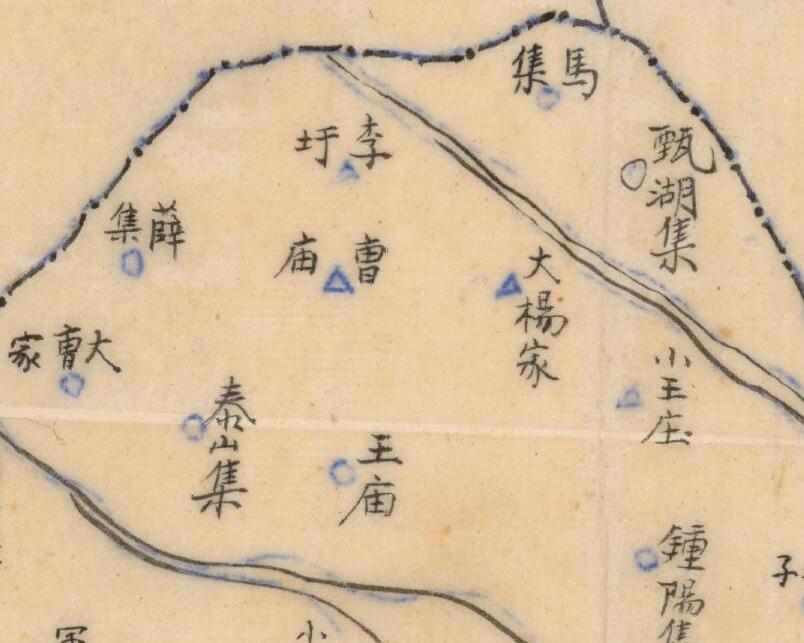 馬集
甄湖集
李圩
薛集
曹庙
大楊家
大曹家
小王庄
泰山集
王庙
鍾陽集
子
小